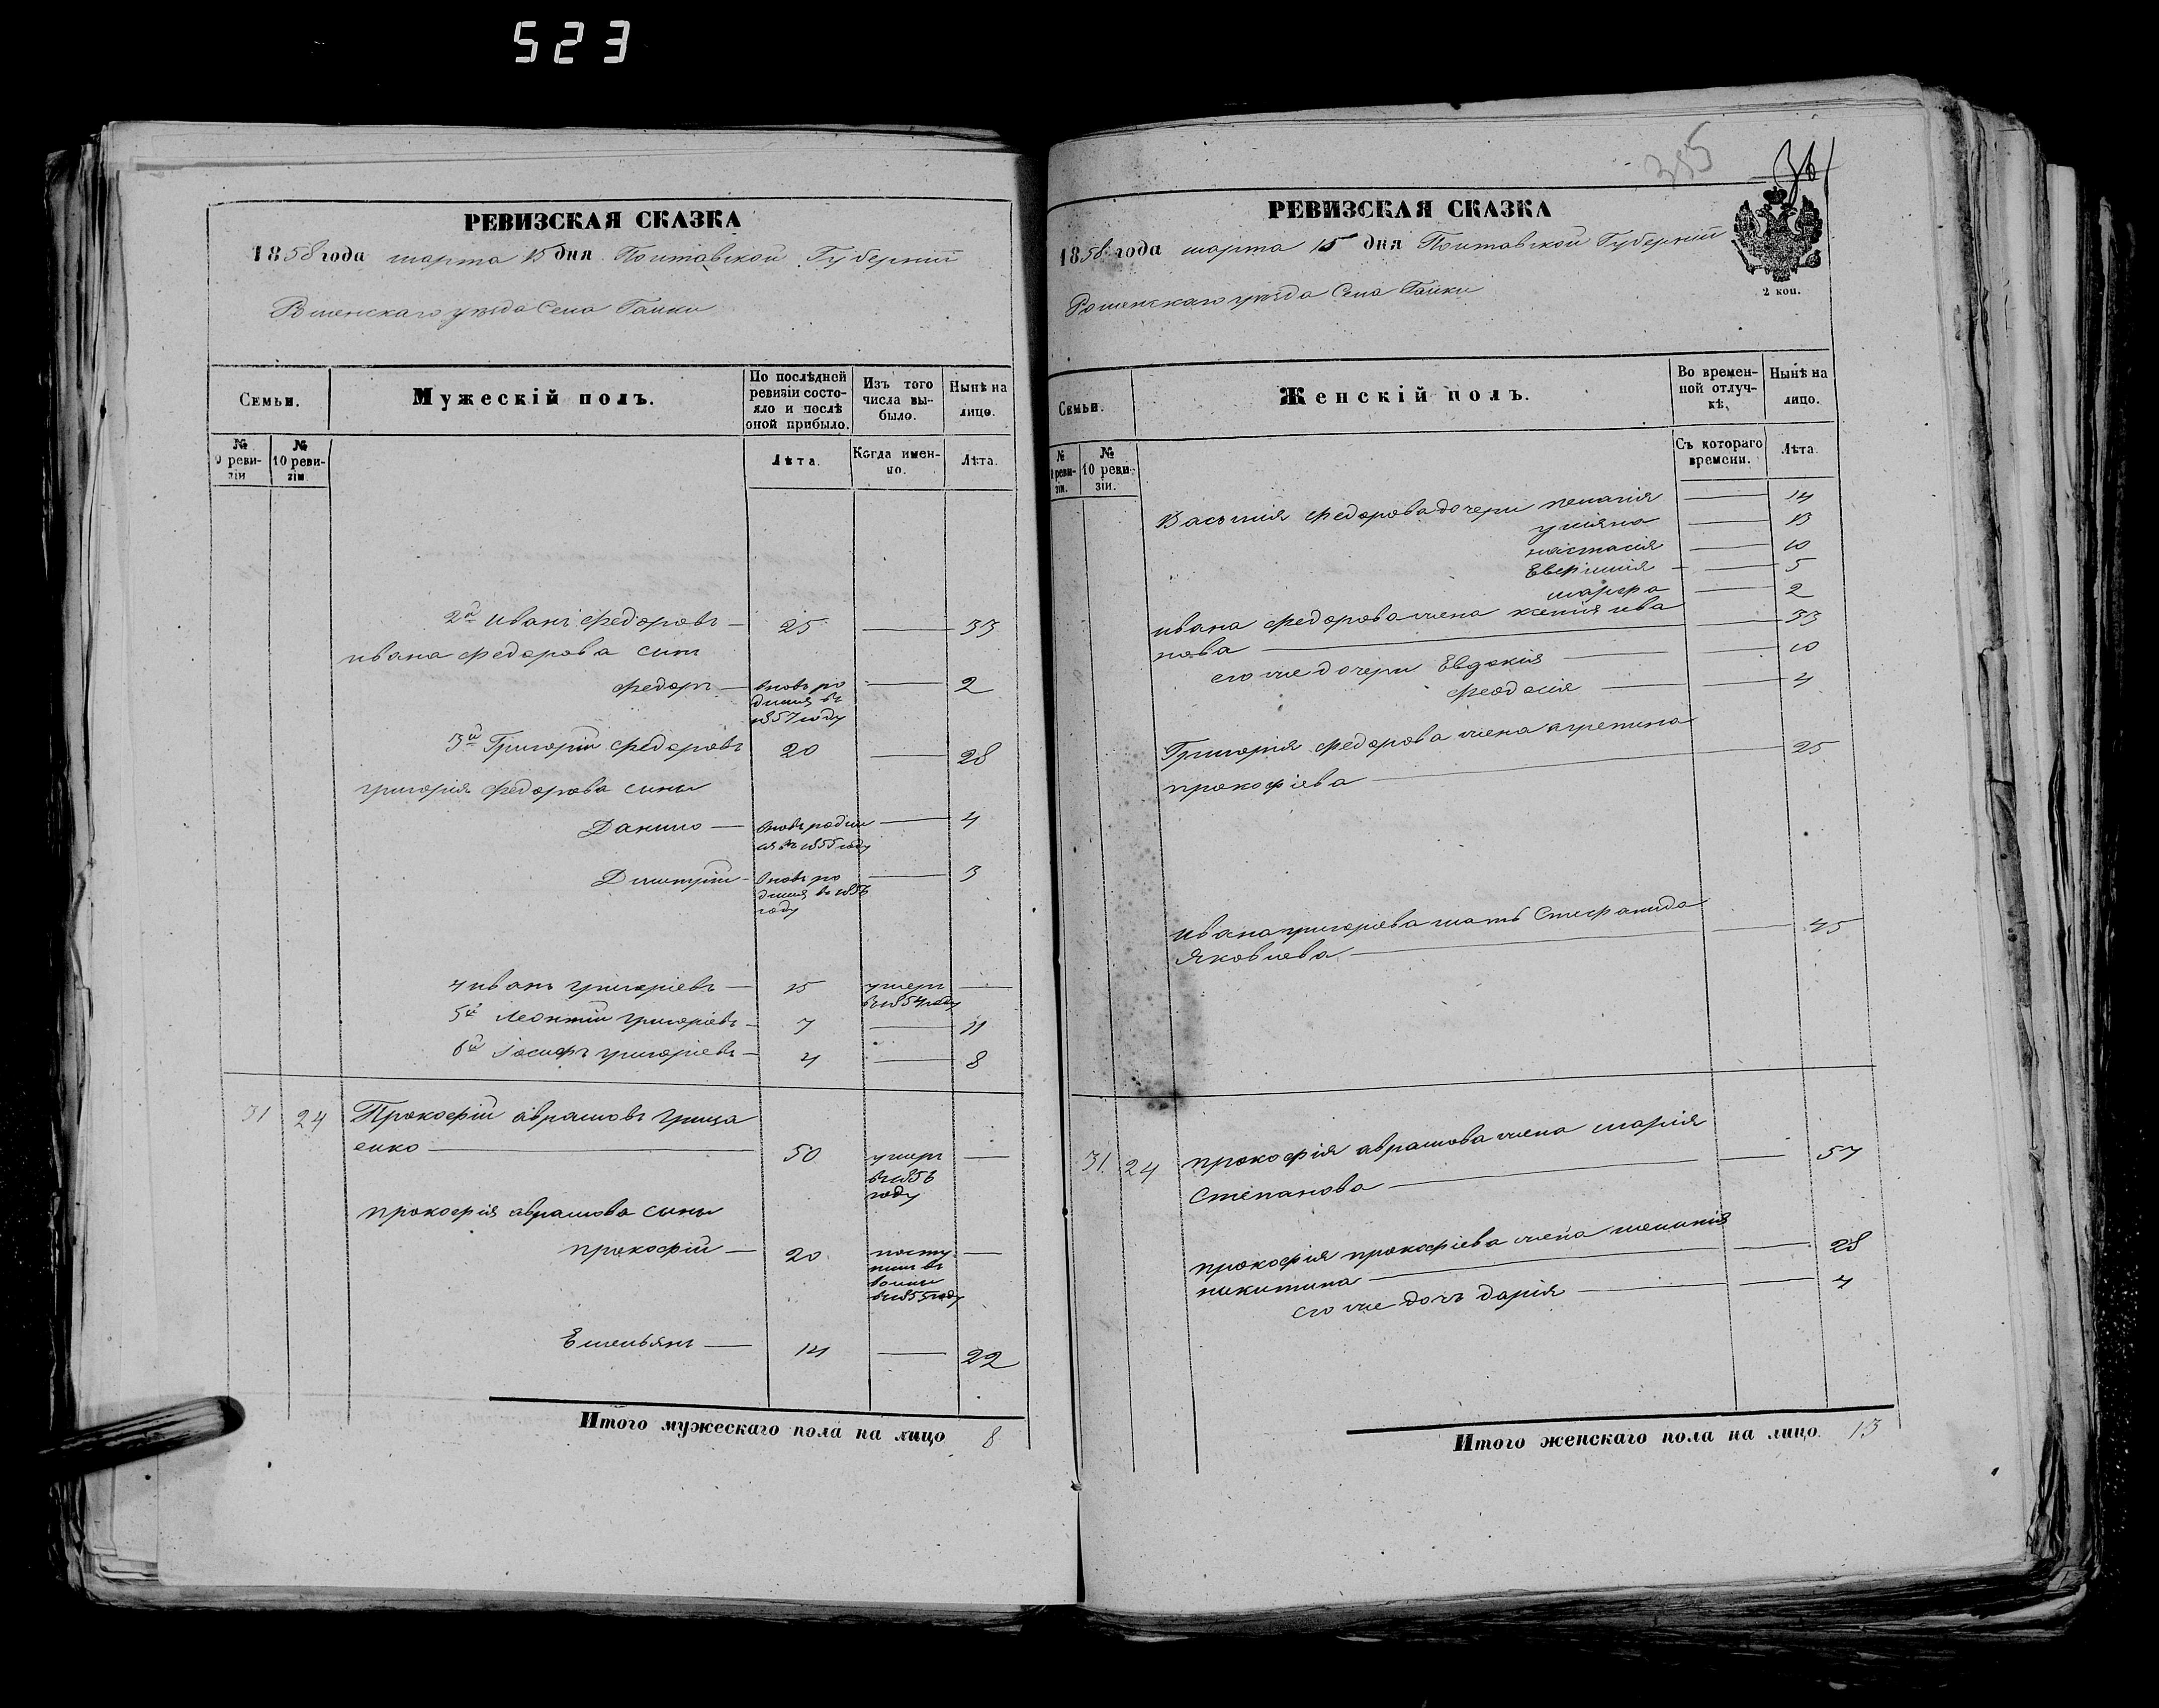 523
РЕВИЗСКАЯ СКАЗКА
1858 года марта 15 дня Полтавской Губерніи
Роменскаго уѣзда Села Гайки
Семьи.
Мужескій полъ.
По послѣдней ревизіи состояло и послѣ оной прибыло.
Изъ того числа выбыло.
Нынѣ на лицо.
№ 9 ревизіи
№ 10 ревизіи.
Лѣта.
Когда именно.
Лѣта.
2й иванъ федоровъ — 25 — 33
ивана федорова сын
федоръ — вновь ро
дился въ
1857 году — 2
3й Григорій федоровъ 20 — 28
григорія федорова сины
Данило — вновь родил
ся въ 1855 году — 4
Дмитрій — вновь ро
дился в 1856
году — 3
4 иванъ григоріевъ — 15 умеръ
въ 1854 году —
5й Леонтій григоріевъ — 7 — 11
6й Іосифъ григоріевъ — 4 — 8
31 24 Прокофій аврамовъ грица
енко — 50 умеръ
въ 1856
году —
прокофія аврамова сины
прокофій — 20 посту
пил въ
воины
въ 1855 году —
Емельянъ — 14 — 22
Итого мужескаго пола на лицо 8
385
РЕВИЗСКАЯ СКАЗКА
1858 года марта 15 дня Полтавской Губерніи
Роменскаго уѣзда Села Гайки
2 коп.
Семьи.
Женскій полъ.
Во временной отлучкѣ.
Нынѣ на лицо.
№ 9 ревизіи.
№ 10 ревизіи.
Съ котораго времени.
Лѣта.
Василія федорова дочери пелагія — 14
уліяна — 13
настасія — 10
Евфимія — 5
марфа — 2
ивана федорова жена ксенія ива
нова — 33
его же дочери Евдокія — 10
феодосія — 4
Григорія федорова жена агрепина
прокофіева — 25
ивана григоріева мать Стефанида
Яковлева — 45
31. 24 прокофія аврамова жена марія
Степанова — 57
прокофія прокофіева жена меланія
никитина — 28
его же дочь дарія — 4
Итого женскаго пола на лицо. 13